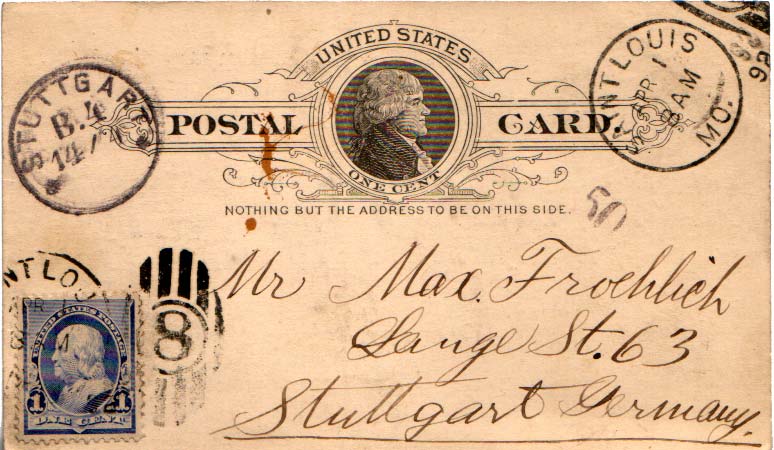 UNITED STATES
POSTAL CARD.
ONE CENT
NOTHING BUT THE ADDRESS TO BE ON THIS SIDE.
STUTTGART
B.4
14/4
SAINT LOUIS
APR 1
8 AM
MO.
92
50
Mr Max. Froehlich
Lange St. 63
Stuttgart Germany.
NT LOU
APR 1
M
8
UNITED STATES POSTAGE
1 1
ONE CENT